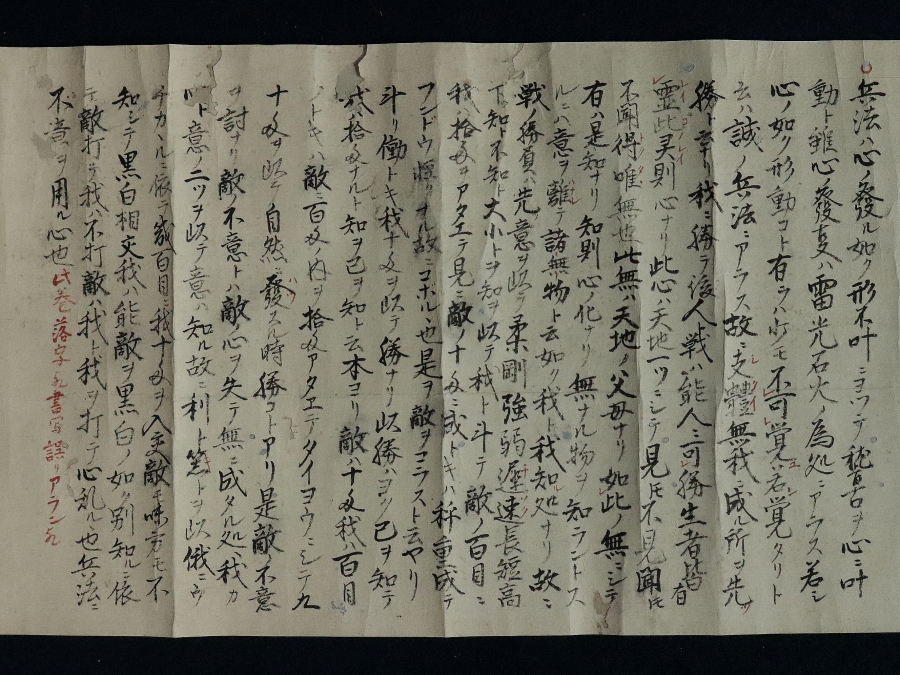 兵法ハ心ノ發ル如ク形不叶ニヨツテ稽古ヲ心ニ叶
動ト雖心發支ハ雷光石火ノ為処ニアラス若シ
心ノ如ク形動コト有ラハ少モ不可覚ハ若覚タリト
云ハ誠ノ兵法ニアラス故ニ支體無我ニ成ル所ヲ先ツ
勝ト幸リ我ニ勝テ後人戦ハ能人ニ可勝生者皆有
霊此灵則心ナリ此心ハ天地一ツニシテ見モ不見聞モ
不聞得唯無也此無ハ天地ノ父母ナリ如此ノ無ニシテ
有ハ是知ナリ知則心ノ化ナリ無ナル物ヲ知ラントス
ルニハ意ヲ離テ諸無物ト云如ク我ト我知処ナリ故ニ
戦ノ勝負ハ先意ヲ以テ柔剛強弱遅速長短高
下知不知ト大小トヲ知ヲ以テ秤ト斗テ敵ノ百目ニ
我八拾目ヲアタエテ見ニ敵ノ十目ニ我トキハ秤重成テ
フンドウ軽リヲル故ニコボル也是ヲ敵ヲコラスト云ヤリ
斗リ働トキ我十目ヲ以テ勝ナリ以勝ハヨツ己ヲ知テ
我八拾目ナルト知ヲ己ヲ知ト云本ヨリ敵ハ十目我ハ百目
ノトキハ敵一百目ノ内ヲ拾目アタエテタイヨウニシテ九
十目ヲ以テ自然ニ發スル時勝コトアリ是敵ノ不意
ヲ討ナリ敵ノ不意トハ敵ノ心ヲ失テ無ニ成タル処ヘ我カ
ト意ノ二ツヲ以テ意ハ知ル故ニ利ト
チカハル依テ敵百目ニ我十目ヲ入支敵モ味方モ不
知シテ黒白相交我ハ能敵ヲ黒白ノ如ク別知ルニ依
テ敵打テ我ハ不打敵ハ我ト我ヲ打テ心乱ル也兵法ニ
不意ヲ用ル心也此巻落字又書写誤リアラン